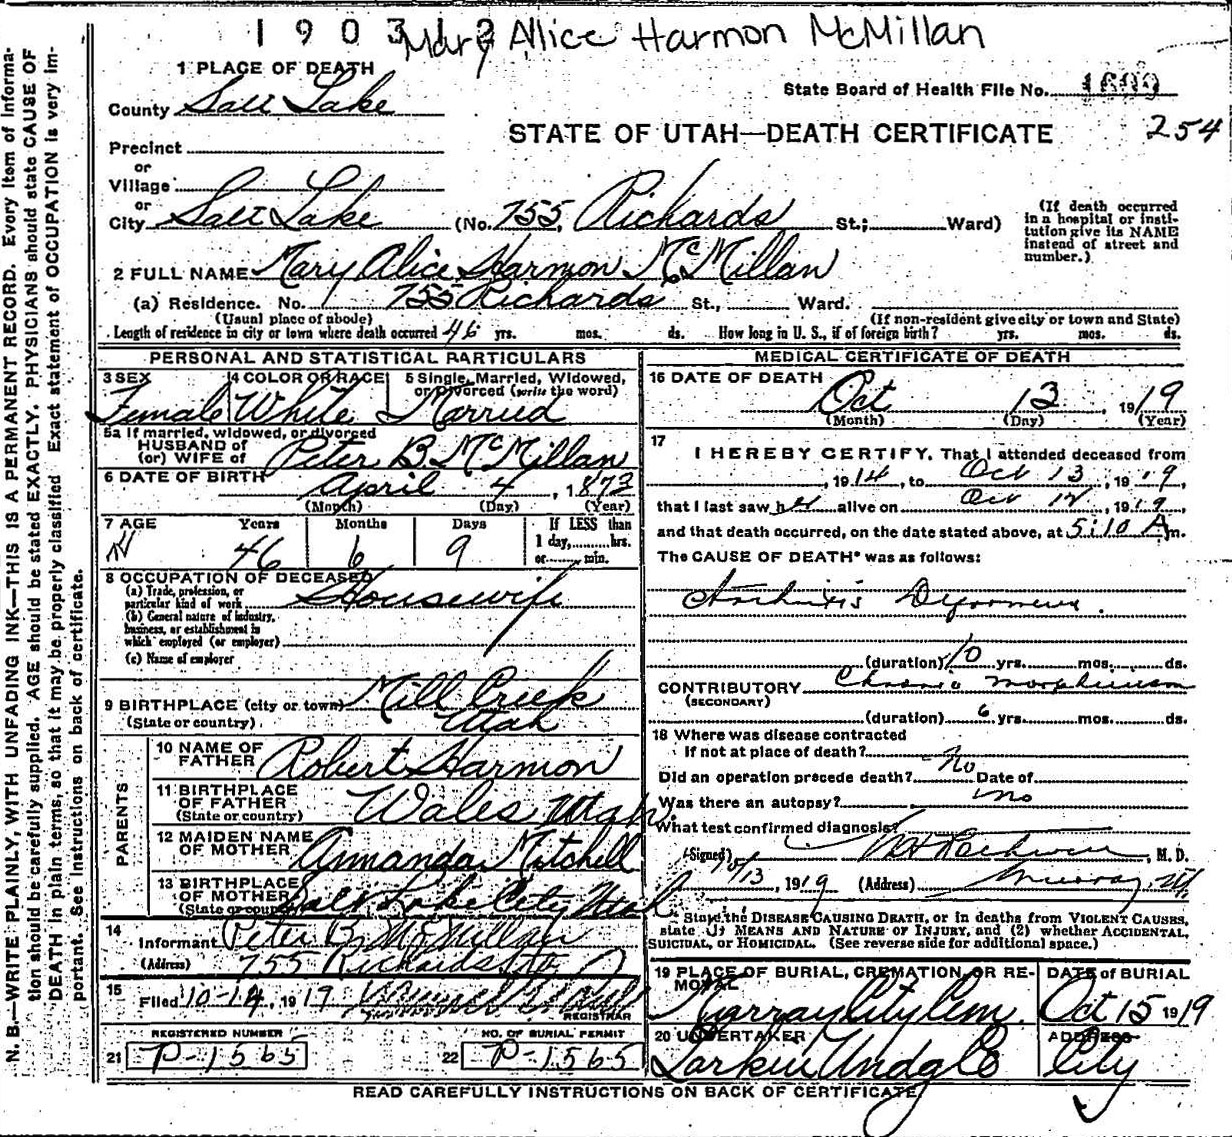 190312
Mary Alice Harmon McMillan
1 PLACE OF DEATH
County Salt Lake
State Board of Health File No. 1699
STATE OF UTAH—DEATH CERTIFICATE 254
Precinct
or
Village
or
City Salt Lake (No. 755, Richards St.; Ward)
(If death occurred in a hospital or insti-
tution give its NAME
instead of street and
number.)
2 FULL NAME Mary Alice Harmon McMillan
(a) Residence. No. 755 Richards St., Ward.
(Usual place of abode) (If non-resident give city or town and State)
Length of residence in city or town where death occurred 46 yrs. mos. ds. How long in U. S., if of foreign birth? yrs. mos. ds.
PERSONAL AND STATISTICAL PARTICULARS
3 SEX 4 COLOR OR RACE 5 Single, Married, Widowed,
or Divorced (write the word)
Female White Married
5a If married, widowed, or divorced
HUSBAND of
(or) WIFE of Peter B. McMillan
6 DATE OF BIRTH April 4, 1873
(Month) (Day) (Year)
7 AGE Years Months Days If LESS than
1 day, hrs.
or min.
46 6 9
8 OCCUPATION OF DECEASED
(a) Trade, profession, or
particular kind of work Housewife
(b) General nature of industry,
business, or establishment in
which employed (or employer)
(c) Name of employer
9 BIRTHPLACE (city or town) Mill Creek
(State or country) Utah
PARENTS
10 NAME OF
FATHER Robert Harmon
11 BIRTHPLACE
OF FATHER
(State or country) Wales Utah
12 MAIDEN NAME
OF MOTHER Amanda Mitchell
13 BIRTHPLACE
OF MOTHER
(State or country) Salt Lake City Utah
14
Informant Peter B. McMillan
(Address) 755 Richards
15
Filed 10-14, 1919
REGISTRAR
REGISTERED NUMBER NO. OF BURIAL PERMIT
21 P-1565 22 P-1565
MEDICAL CERTIFICATE OF DEATH
16 DATE OF DEATH
Oct 13, 1919
(Month) (Day) (Year)
17
I HEREBY CERTIFY, That I attended deceased from
, 1914, to Oct 13, 1919
that I last saw her alive on Oct 12, 1919,
and that death occurred, on the date stated above, at 5:10 A m.
The CAUSE OF DEATH* was as follows:
Arthritis Deformans.
(duration) 10 yrs. mos. ds.
CONTRIBUTORY Chronic morphinism
(SECONDARY)
(duration) 6 yrs. mos. ds.
18 Where was disease contracted
If not at place of death?
Did an operation precede death? No Date of
Was there an autopsy? no
What test confirmed diagnosis?
(Signed) , M. D.
10/13, 1919 (Address) Murray, Ut
*State the DISEASE CAUSING DEATH, or in deaths from VIOLENT CAUSES,
state (1) MEANS AND NATURE OF INJURY, and (2) whether ACCIDENTAL,
SUICIDAL, or HOMICIDAL. (See reverse side for additional space.)
19 PLACE OF BURIAL, CREMATION, OR RE-
MOVAL DATE of BURIAL
Murray City Cem. Oct 15 1919
20 UNDERTAKER ADDRESS
Larkin Undg Co City
READ CAREFULLY INSTRUCTIONS ON BACK OF CERTIFICATE
N. B.—WRITE PLAINLY, WITH UNFADING INK—THIS IS A PERMANENT RECORD. Every item of Informa-
tion should be carefully supplied. AGE should be stated EXACTLY. PHYSICIANS should state CAUSE OF
DEATH in plain terms, so that it may be properly classified. Exact statement of OCCUPATION is very im-
portant. See Instructions on back of certificate.